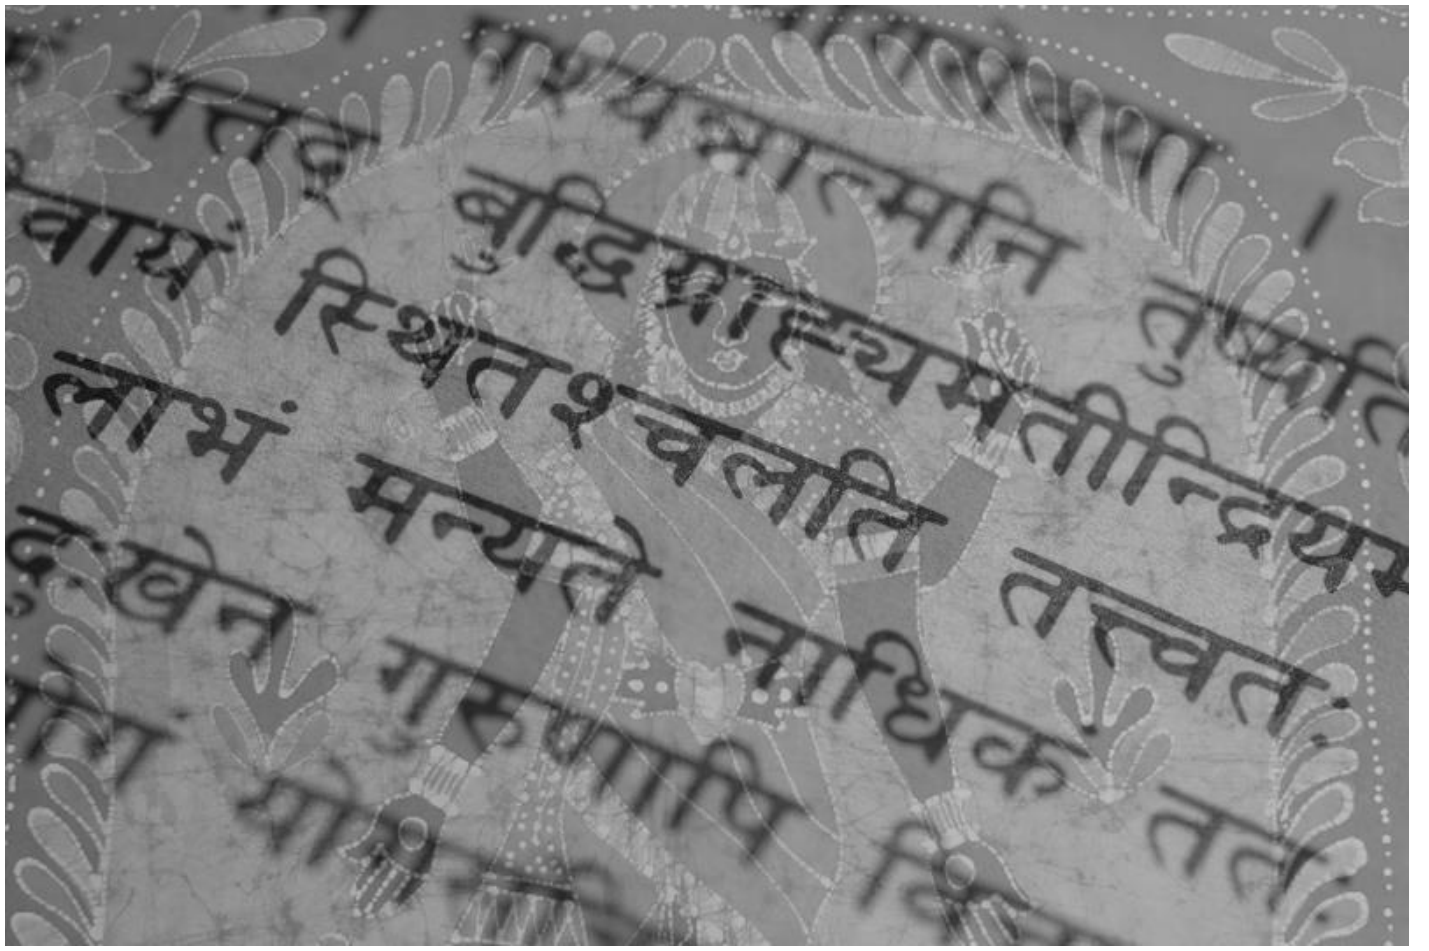 पश्यन्नात्मनि तुष्यति
यत्तद् बुद्धिग्राह्यमतीन्द्रियम
वायं स्थितश्चलति तत्त्वतः
लाभं मन्यते नाधिकं ततः
दुःखेन गुरुणापि